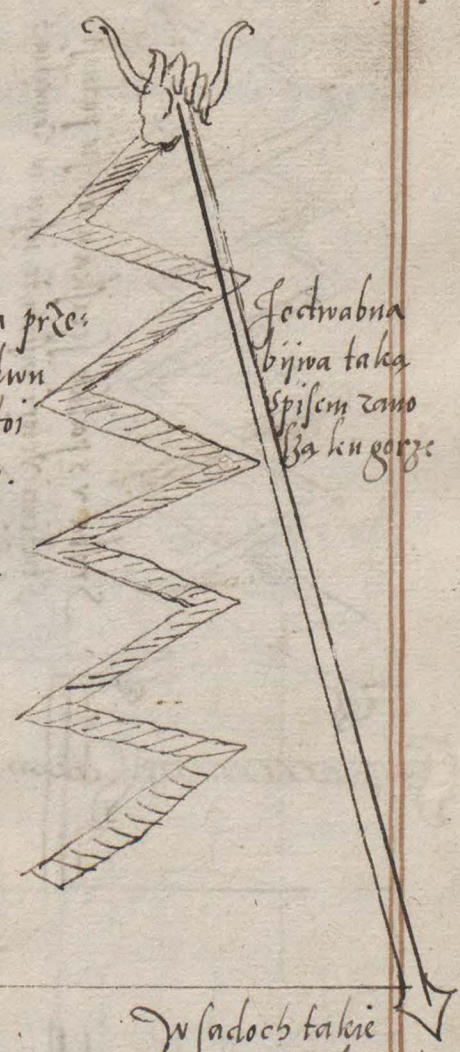 prze:
Jedwabna
bijwa taką
Spisem zano
szą ku gorze
W sadoch takie